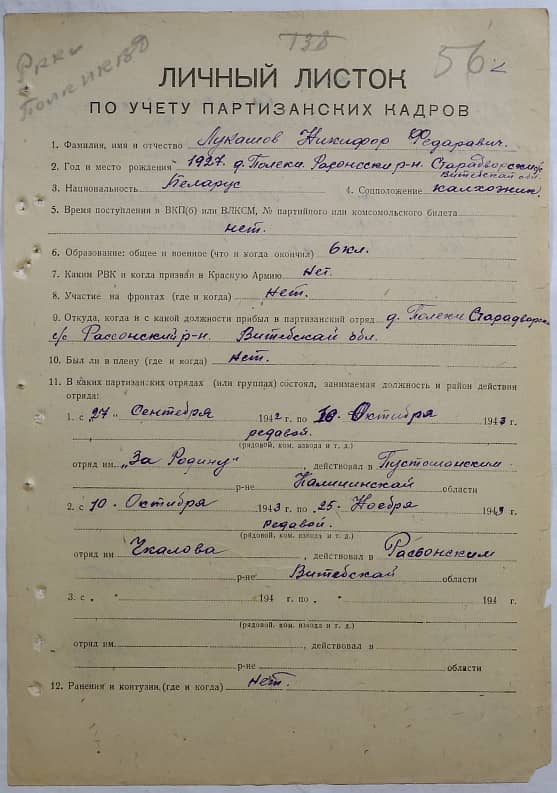 138
56
РККА
Полк НКВД
ЛИЧНЫЙ ЛИСТОК
ПО УЧЕТУ ПАРТИЗАНСКИХ КАДРОВ
1. Фамилия, имя и отчество Лукашов Никифор Федаравич.
2. Год и место рождения 1927. д. Полеки. Расонсски р-н. Старадворский с/с
Витебской обл
3. Национальность Беларус 4. Соцположение калхожник.
5. Время поступления в ВКП(б) или ВЛКСМ, № партийного или комсомольского билета
нет.
6. Образование: общее и военное (что и когда окончил) 6 кл.
7. Каким РВК и когда призван в Красную Армию Нет.
8. Участие на фронтах (где и когда) Нет.
9. Откуда, когда и с какой должности прибыл в партизанский отряд д. Полеки Старадворск
с/с Рассонский р-н. Витебской обл.
10. Был ли в плену (где и когда) Нет.
11. В каких партизанских отрядах (или группах) состоял, занимаемая должность и район действия
отряда:
1. с „27“ Сентебря 1942 г. по 10 Октибря 1943 г.
редавой.
(рядовой, ком. взвода и т. д.)
отряд им. „За Родину“, действовал в Пустошанским
р-не Калининской области
2. с 10. Октибря 1943 г. по 25. Ноебря 1943 г.
редавой.
(рядовой, ком. взвода и т. д.)
отряд им. Чкалова, действовал в Расьонским
р-не Витебскай области
3. с „ “ 194 г. по „ “ 194 г.
(рядовой, ком. взвода и т. д.)
отряд им. , действовал в
р-не области
12. Ранения и контузии (где и когда) Нет.